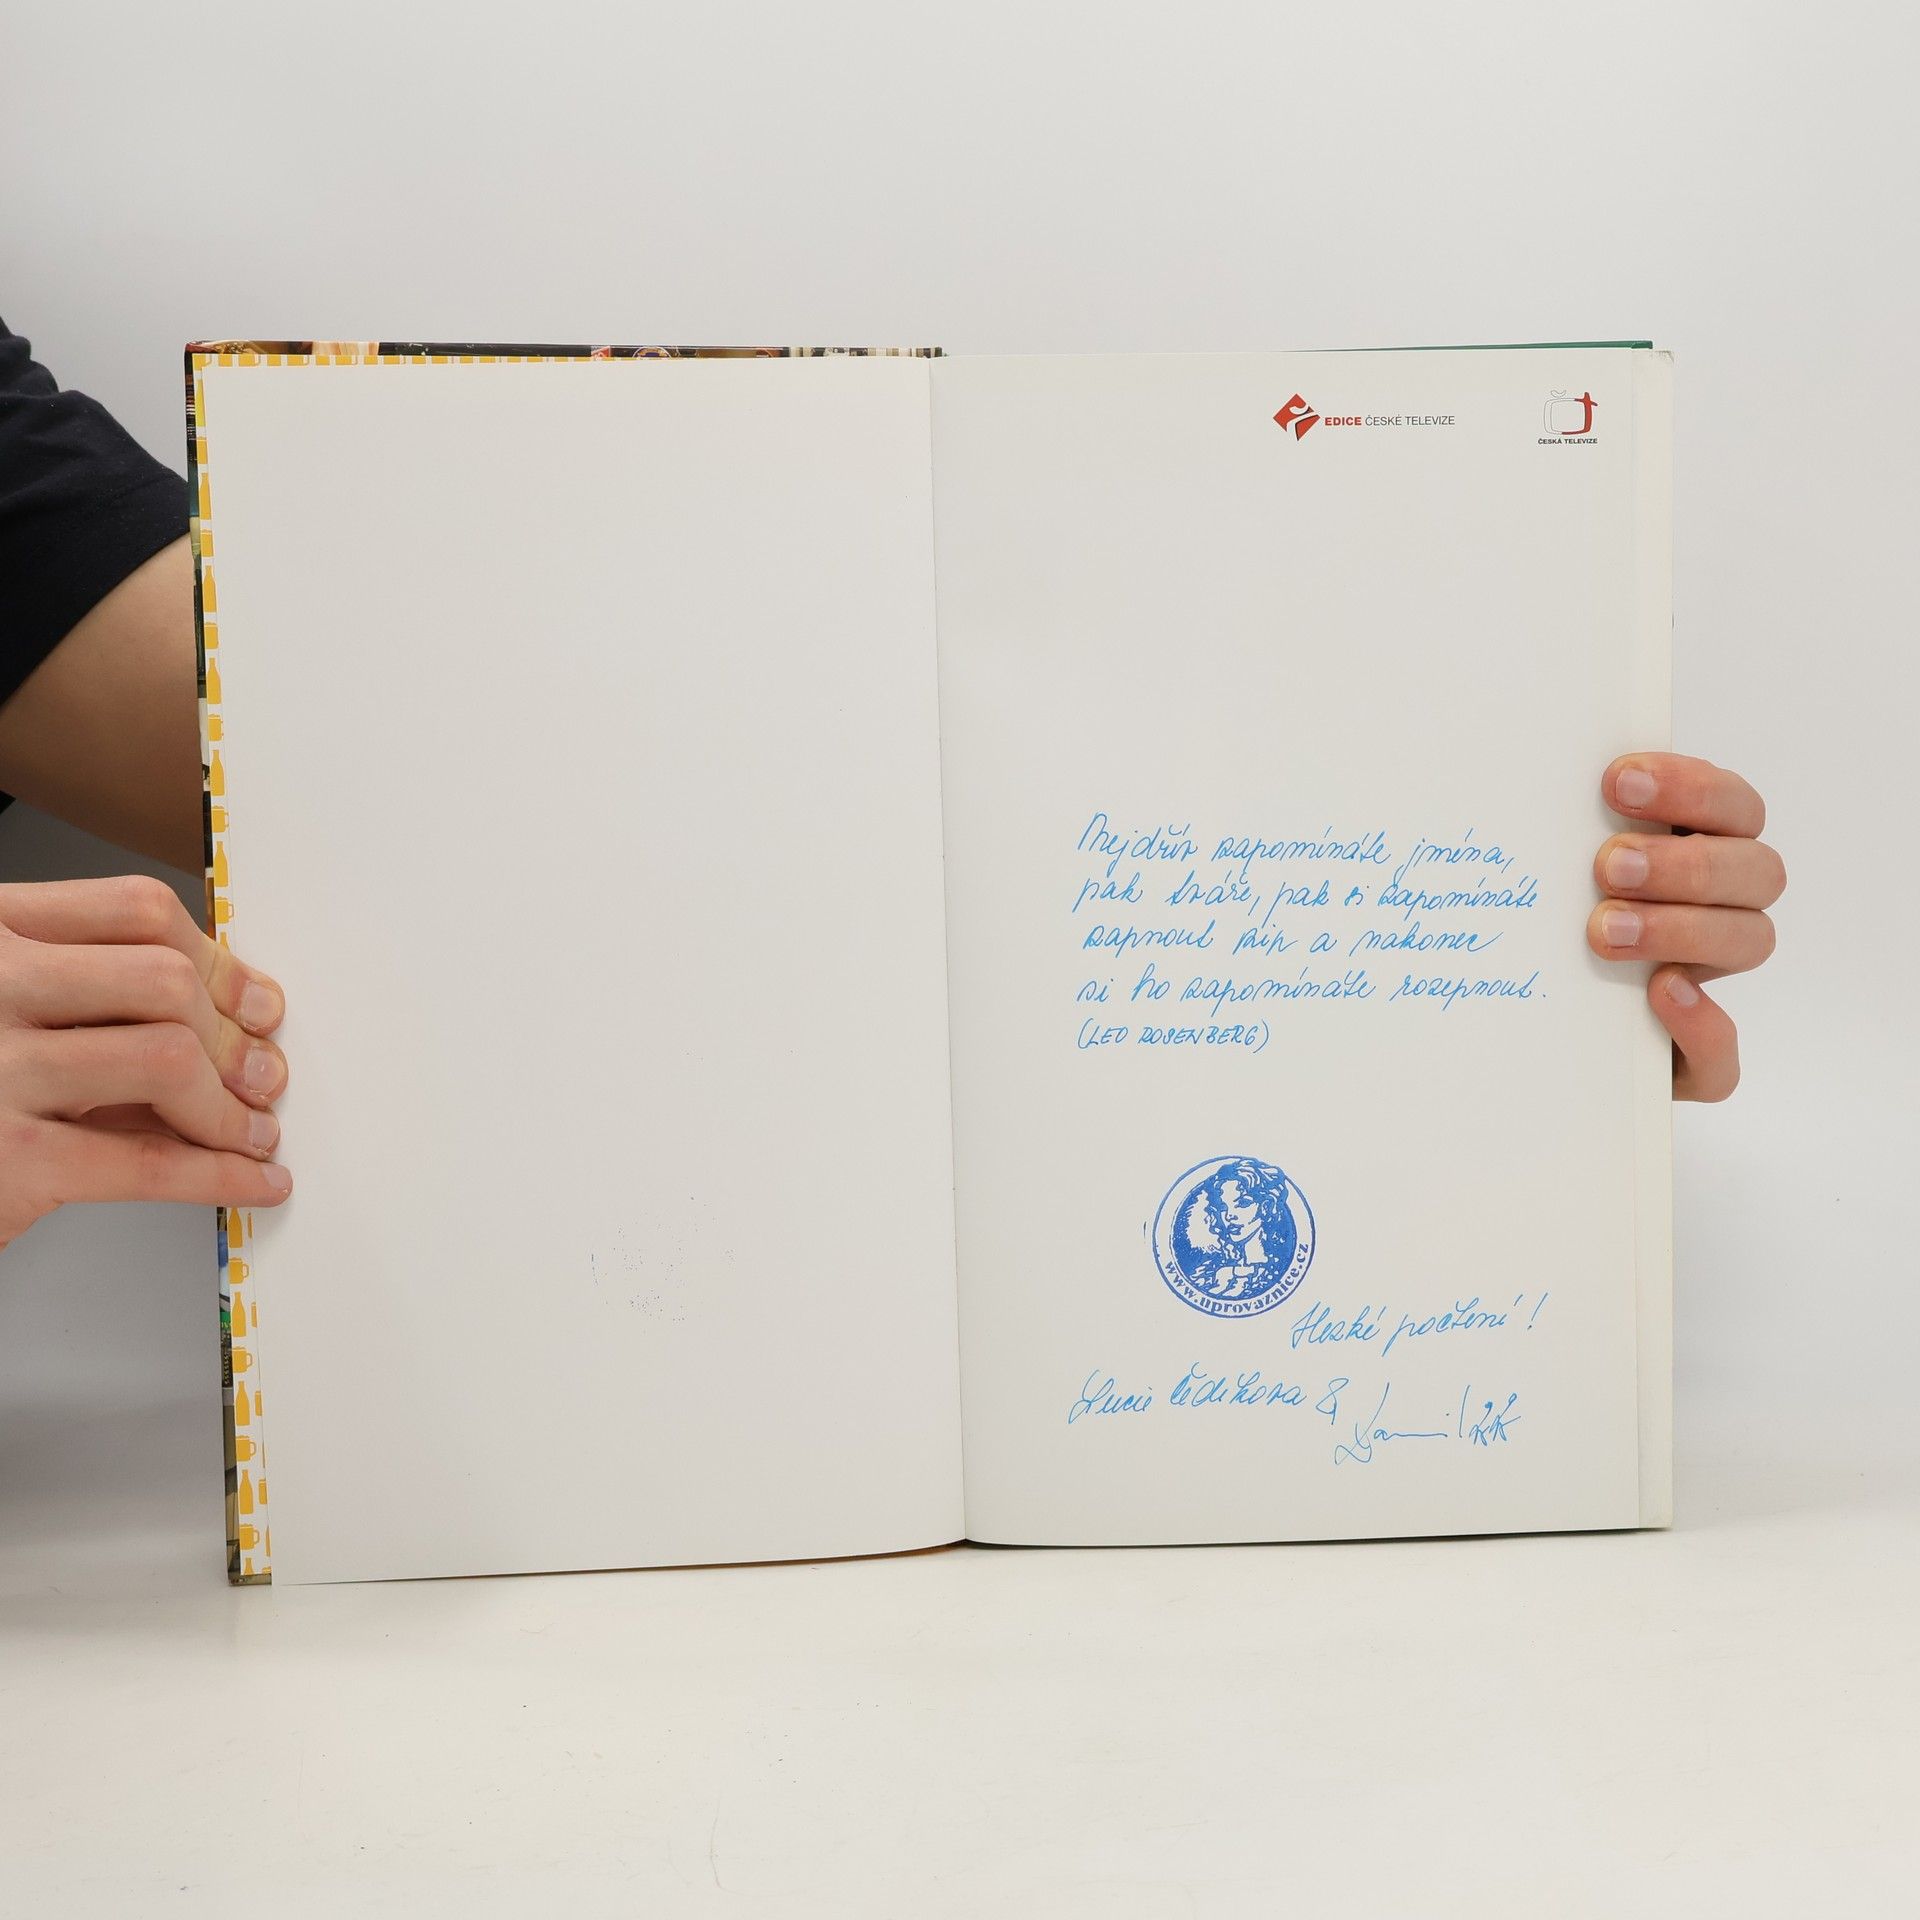 EDICE ČESKÉ TELEVIZE
ČESKÁ TELEVIZE
Nejdřív zapomínáte jména,
pak tváře, pak si zapomínáte
zapnout zip a nakonec
si ho zapomínáte rozepnout.
(LEO ROSENBERG)
www.uprovaznice.cz
Hezké počtení!
Lucie Čedíkova &